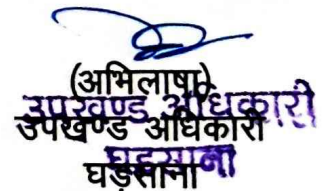 (अभिलाषा)
उपखण्ड अधिकारी
उपखण्ड अधिकारी
घड़साना
घड़साना